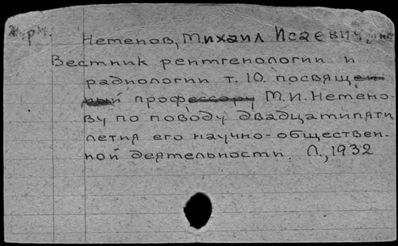 Неменов, Михаил Исаевич,
Вестник рентгенологии и
радиологии т. 10. посвящен
ный профессору М.И. Немено-
ву по поводу двадцатипяти
летия его научно-обществен-
ной деятельности. Л., 1932